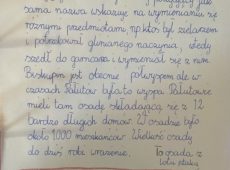 sama nazwa wskazuje na wymienianiu się
różnymi przedmiotami, np. ktoś był zielarzem
i potrzebował glinianego naczynia, wtedy
szedł do garncarza i wymieniał się z nim.
Biskupin jest obecnie półwyspem, ale w
czasach Palutów była to wyspa. Palutowie
mieli tam osadę składającą się z 12
bardzo długich domów. W osadzie było
około 1000 mieszkańców. Wielkość osady
do dziś robi wrażenie. To osada z
lotu ptaka